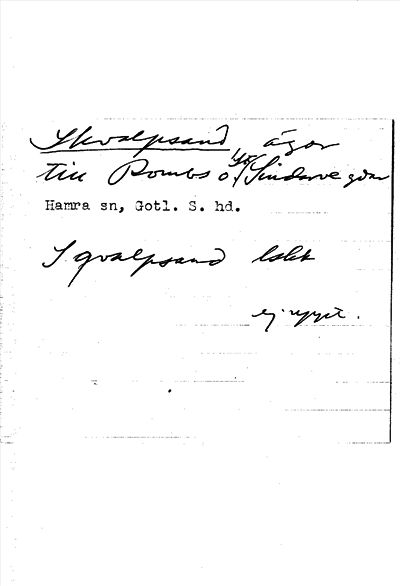 Skvalpsand, ägor
till Bombs o. St. Sindarve gdar
Hamra sn, Gotl. S. hd.
Sqvalpsand Lokk
ej uppt.